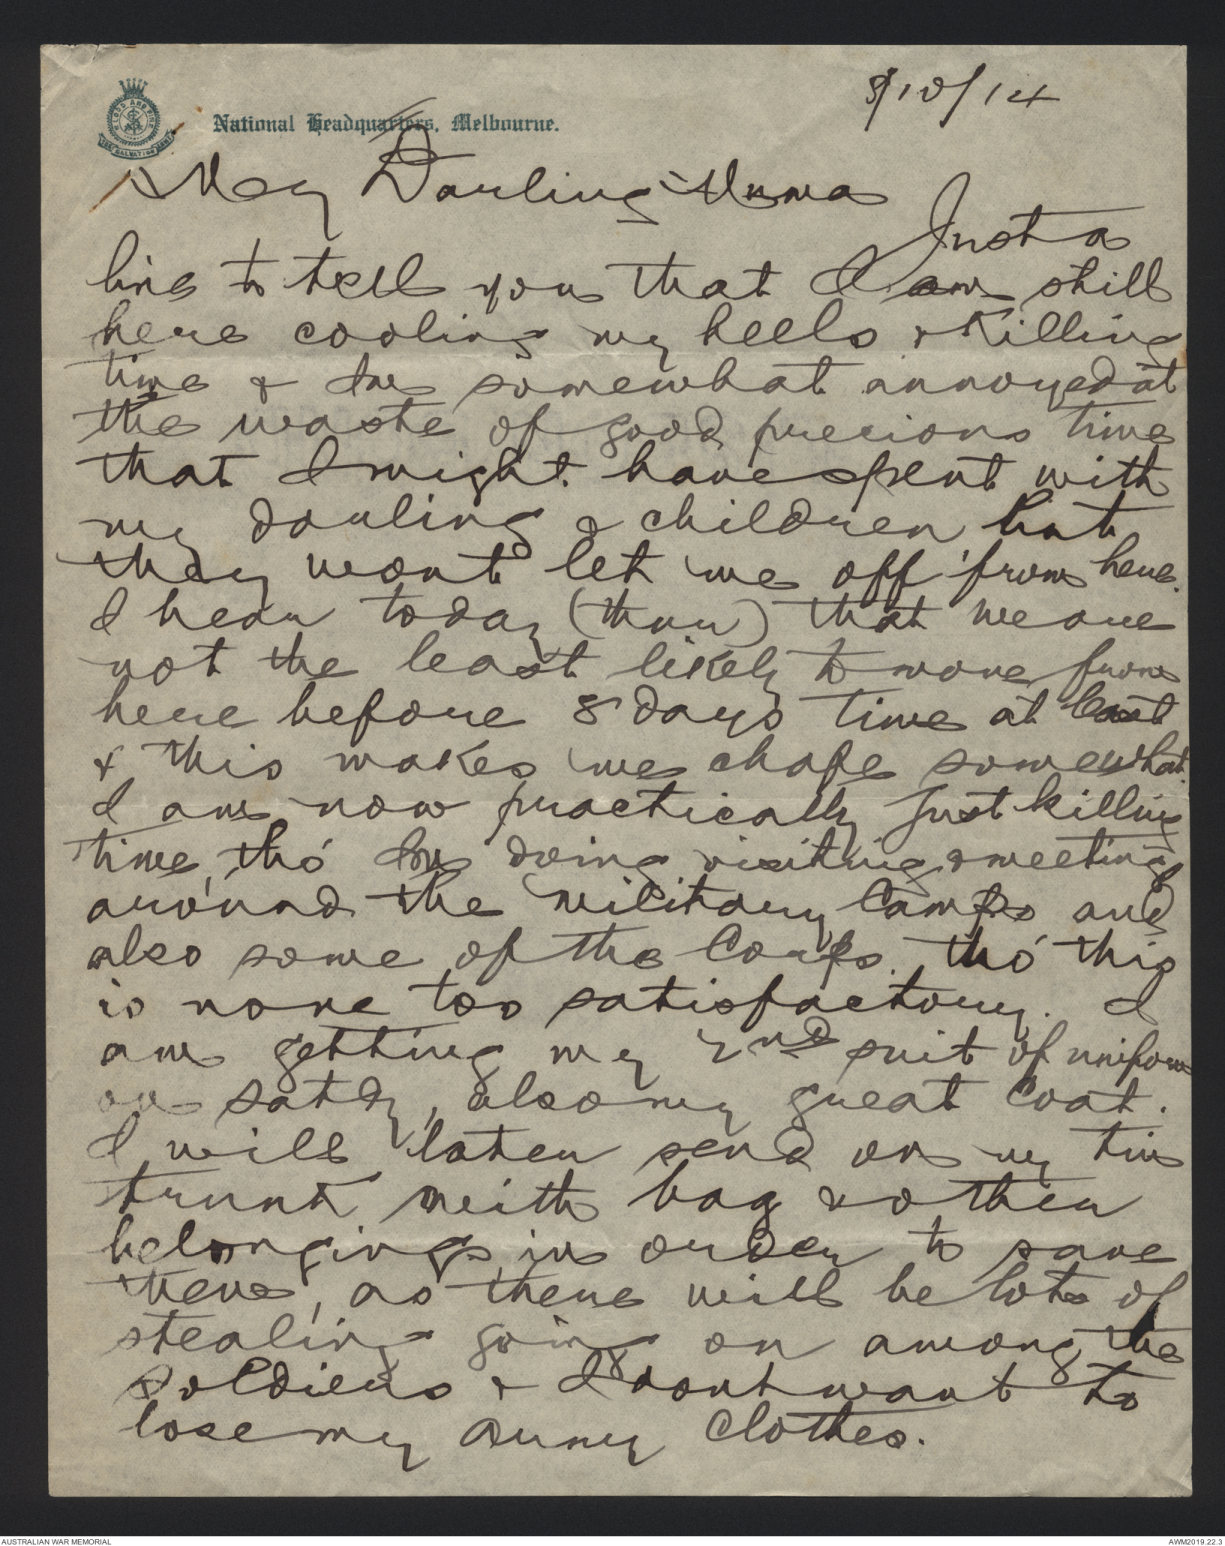 8/10/14
BLOOD AND FIRE
THE SALVATION ARMY
National Headquarters, Melbourne.
My Darling Unma
Just a
line to tell you that I am still
here cooling my heels & killing
time & Im somewhat annoyed at
the waste of good precious time
that I might have spent with
my darling & children but
they wont let me off from here.
I hear today (thur) that we are
not the least likely to move from
here before 8 days time at least
& this makes me chafe somewhat.
I am now practically just killing
time, tho' Im doing visiting & meetings
around the military Camps and
also some of the Corps. tho' this
is none too satisfactory. I
am getting my 2nd suit of uniform
on satdy, also my great Coat.
I will later send on my tin
trunk with bag & other
belongings in order to save
them, as there will be lots of
stealing going on among the
soldiers & I dont want to
lose my Army Clothes.
AUSTRALIAN WAR MEMORIAL
AWM2019.22.3